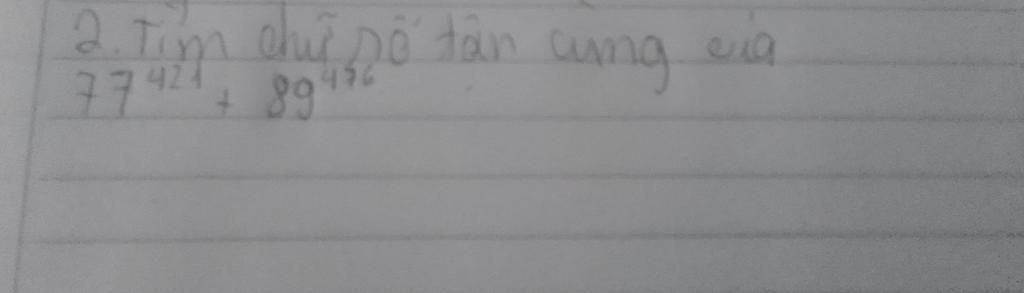 2. Tìm chữ số tận cùng của
77^421 + 89^476